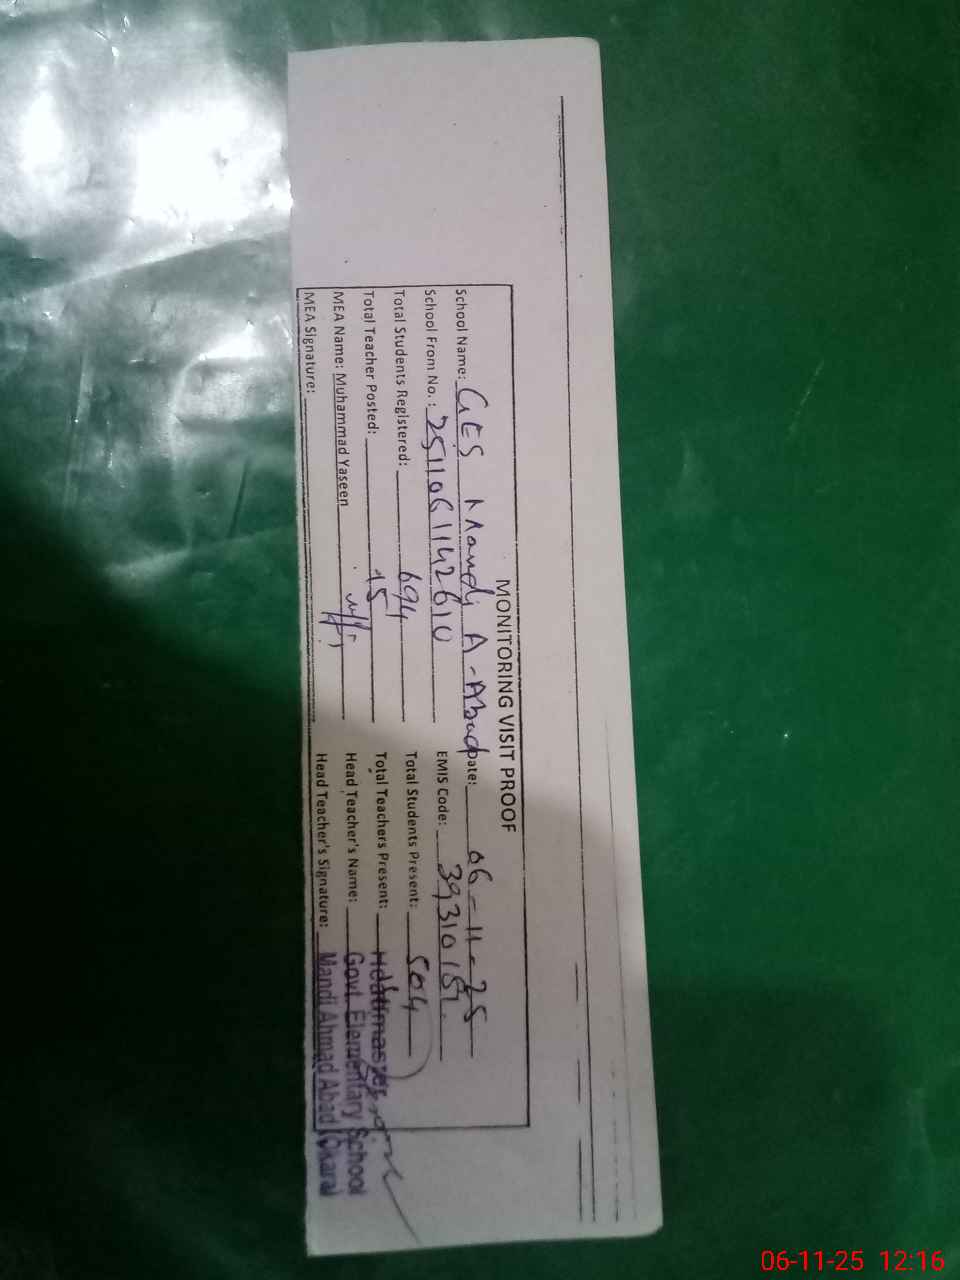 MONITORING VISIT PROOF
School Name: GES Mandi A-Abad Date: 06-11-25
School From No.: 2511061142610 EMIS Code: 39310151
Total Students Registered: 694 Total Students Present: 504
Total Teacher Posted: 15 Total Teachers Present:
MEA Name: Muhammad Yaseen Head Teacher's Name:
MEA Signature: Head Teacher's Signature:
Headmaster
Govt. Elementary School
Mandi Ahmad Abad (Okara)
06-11-25 12:16